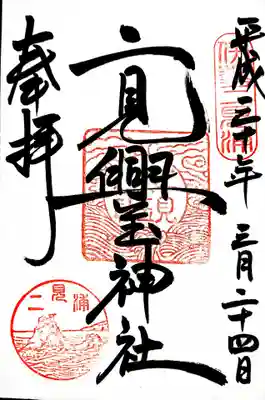 平成三十年 三月二十四日
二見興玉神社
奉拝
二見浦